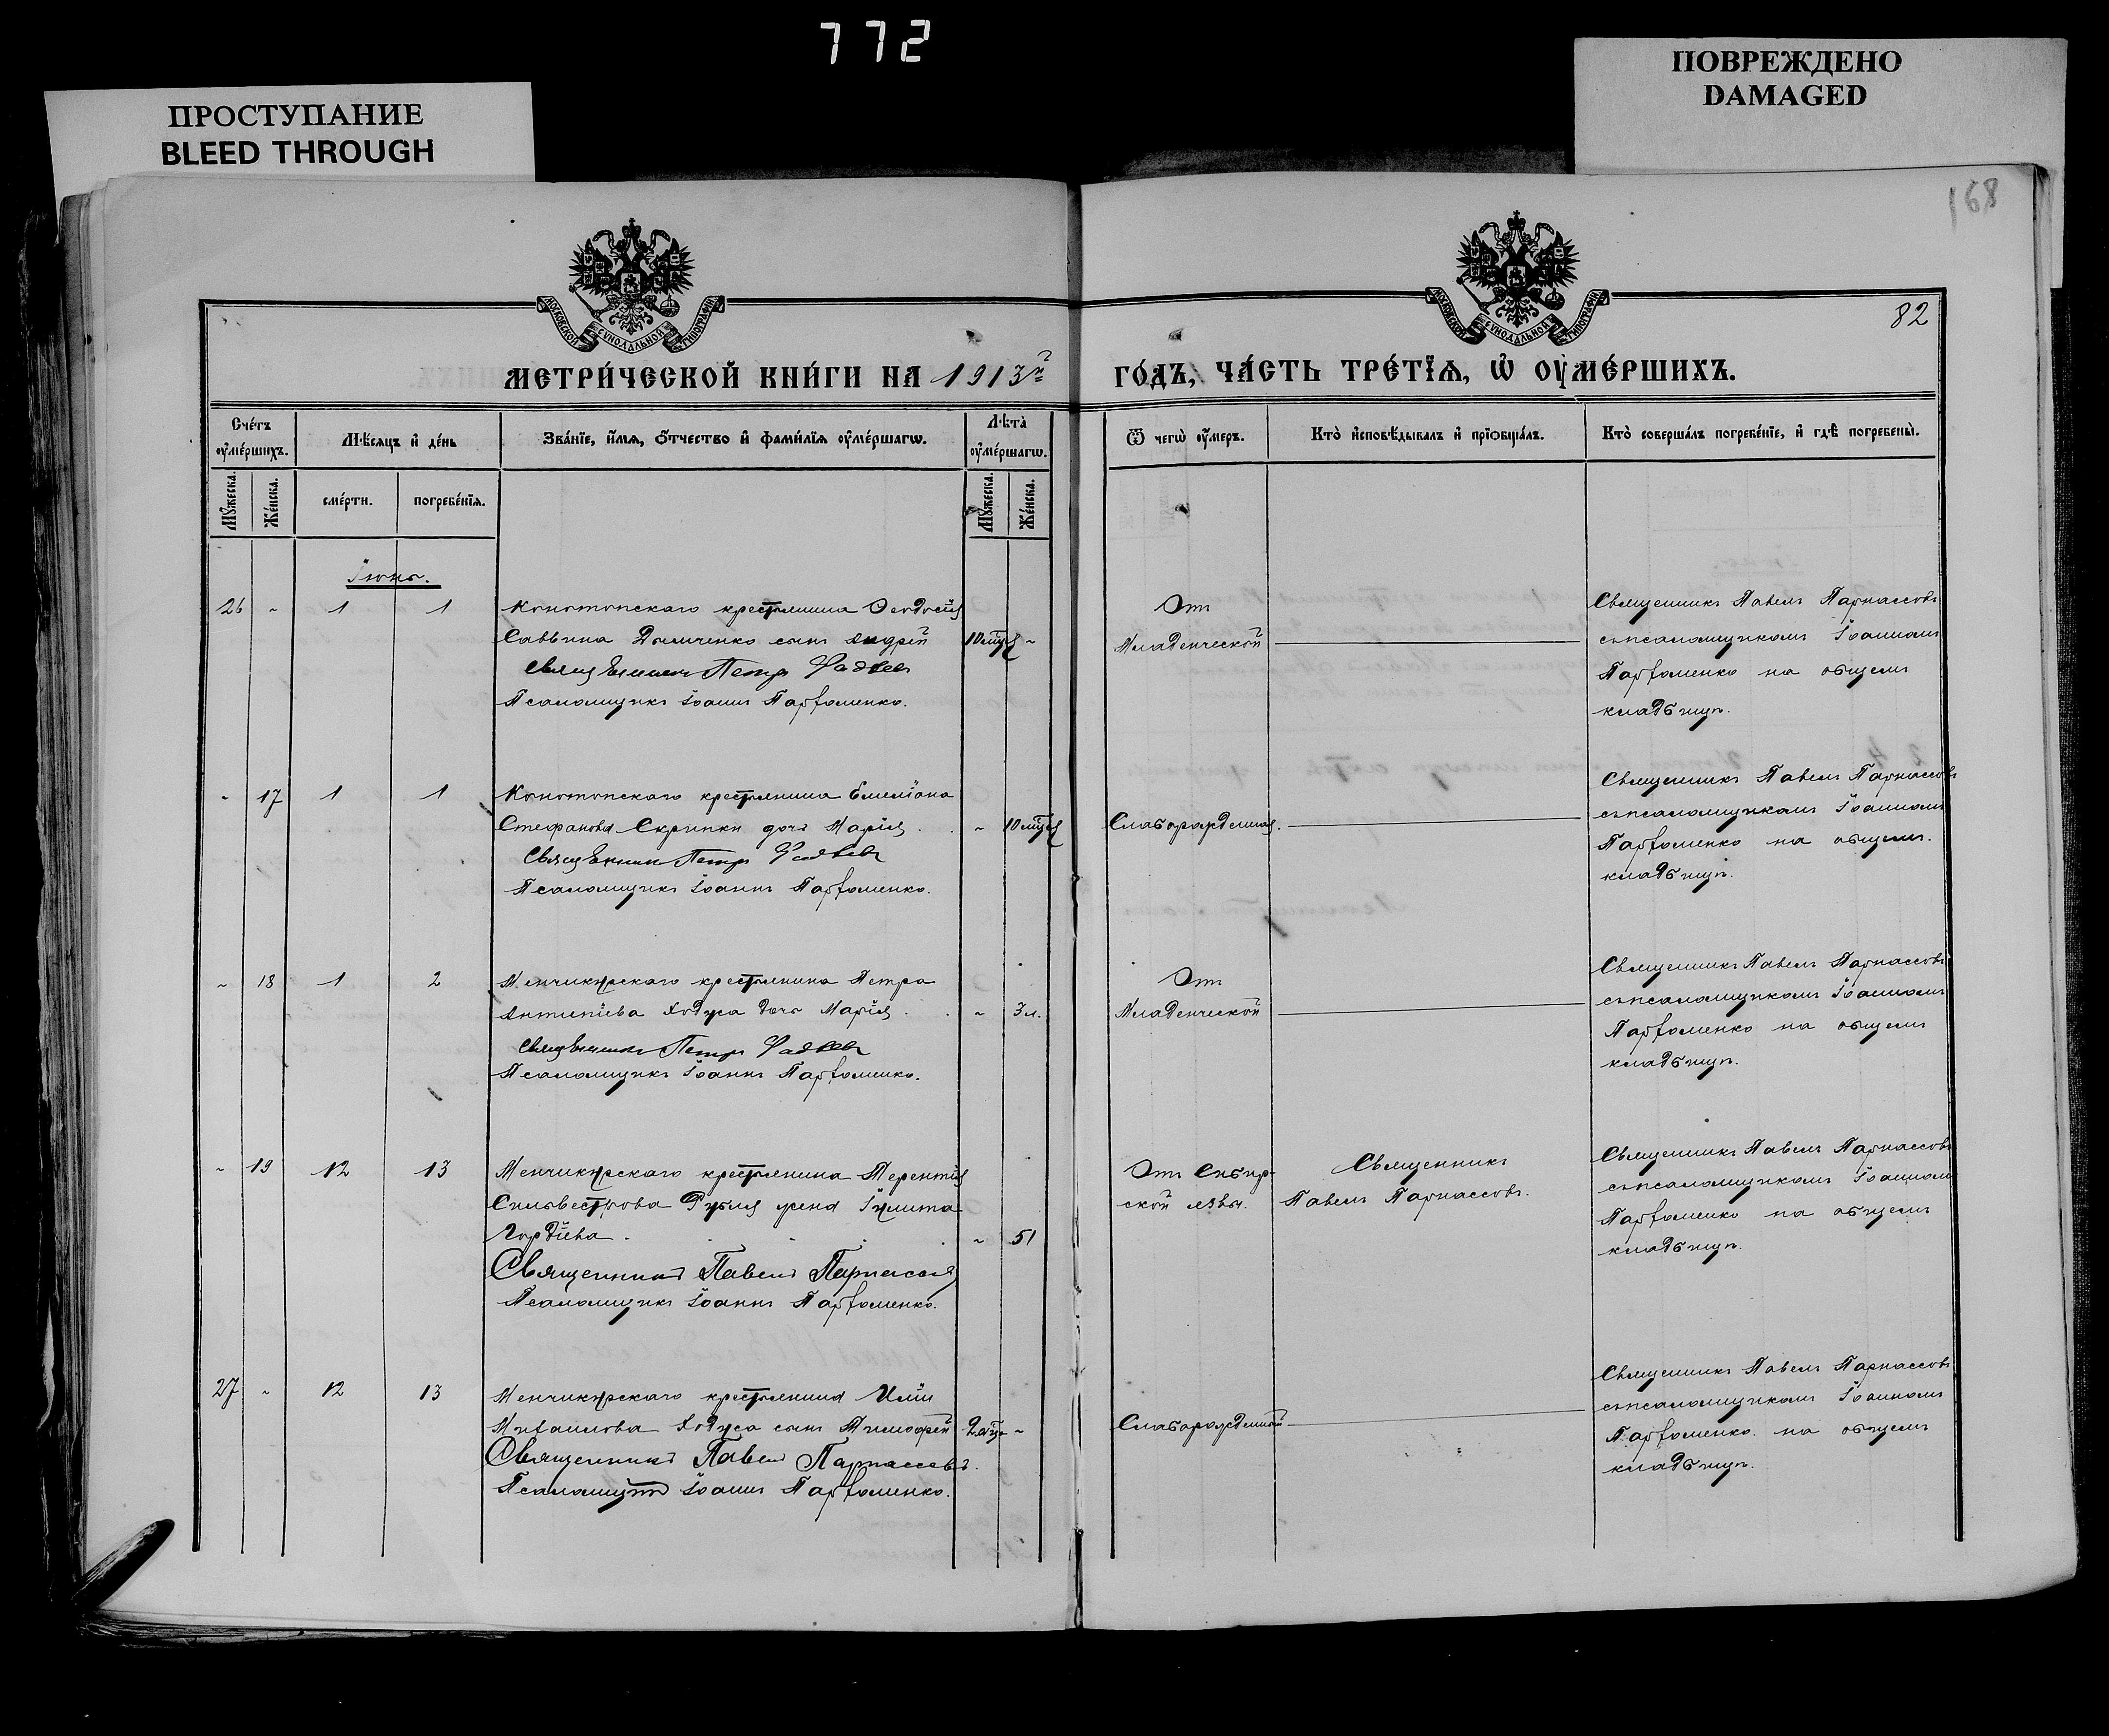 772
ПРОСТУПАНИЕ
BLEED THROUGH
ПОВРЕЖДЕНО
DAMAGED
168
82
МОСКОВСКОЙ СУНОДАЛЬНОЙ ТИПОГРАФІИ
МОСКОВСКОЙ СУНОДАЛЬНОЙ ТИПОГРАФІИ
МЕТРИ́ЧЕСКОЙ КНИ́ГИ НА 1913й
ГО́ДЪ, ЧА́СТЬ ТРЕ́ТЇѦ, Ѡ ОУМЕ́РШИХЪ.
Сче́тъ оумéршихъ.
Мѣ́сяцъ и де́нь
Зва́нїе, и́мѧ, ѻ́тчество и фами́лїѧ оумéршагѡ.
Лѣ́та оумéршагѡ.
Ѿ чегѡ̀ оу́меръ.
Кто̀ исповѣ́дывалъ и прїѡбща́лъ.
Кто̀ соверша́лъ погребе́нїе, и гдѣ̀ погребены̀.
Му́жеска.
Же́нска.
сме́рти.
погребе́нїѧ.
Му́жеска.
Же́нска.
Іюнь.
26 ~ 1 1 Конотопскаго крестьянина Ѳеодосія
Саввина Дымченко сынъ Андрей 10 мѣся ~
Священникъ Петръ Фадѣев
Псаломщикъ Іоаннъ Парфоменко.
Отъ
Младенческой
Священникъ Павелъ Парнассовъ
съ псаломщикомъ Іоанномъ
Парфоменко на общемъ
кладбищѣ.
~ 17 1 1 Конотопскаго крестьянина Емеліана
Стефанова Скрипки дочь Марія ~ 10 мѣся
Священник Петръ Фадѣевъ
Псаломщикъ Іоаннъ Парфоменко.
Слаборожденная.
Священникъ Павелъ Парнассовъ
съ псаломщикомъ Іоанномъ
Парфоменко на общемъ.
кладбищѣ.
~ 18 1 2 Менчикурскаго крестьянина Петра
Антипіева Ходуса дочь Марія ~ 3 л.
Священникъ Петръ Фадѣевъ
Псаломщикъ Іоаннъ Парфоменко.
Отъ
Младенческой
Священникъ Павелъ Парнассовъ
съ псаломщикомъ Іоанномъ
Парфоменко на общемъ
кладбищѣ.
~ 19 12 13 Менчикурскаго крестьянина Терентія
Сильвестрова жена Іулита
Гордіева ~ 51
Священникъ Павелъ Парнассовъ
Псаломщикъ Іоаннъ Парфоменко.
Отъ Сибир-
ской язвы.
Священникъ
Павелъ Парнассовъ.
Священникъ Павелъ Парнассовъ
съ псаломщикомъ Іоанномъ
Парфоменко на общемъ
кладбищѣ.
27 ~ 12 13 Менчикурскаго крестьянина Иліи
Михаилова Ходуса сынъ Тимофей ~
Священникъ Павелъ Парнассовъ.
Псаломщикъ Іоаннъ Парфоменко.
Слаборожденный
Священникъ Павелъ Парнассовъ
съ псаломщикомъ Іоанномъ
Парфоменко на общемъ
кладбищѣ.